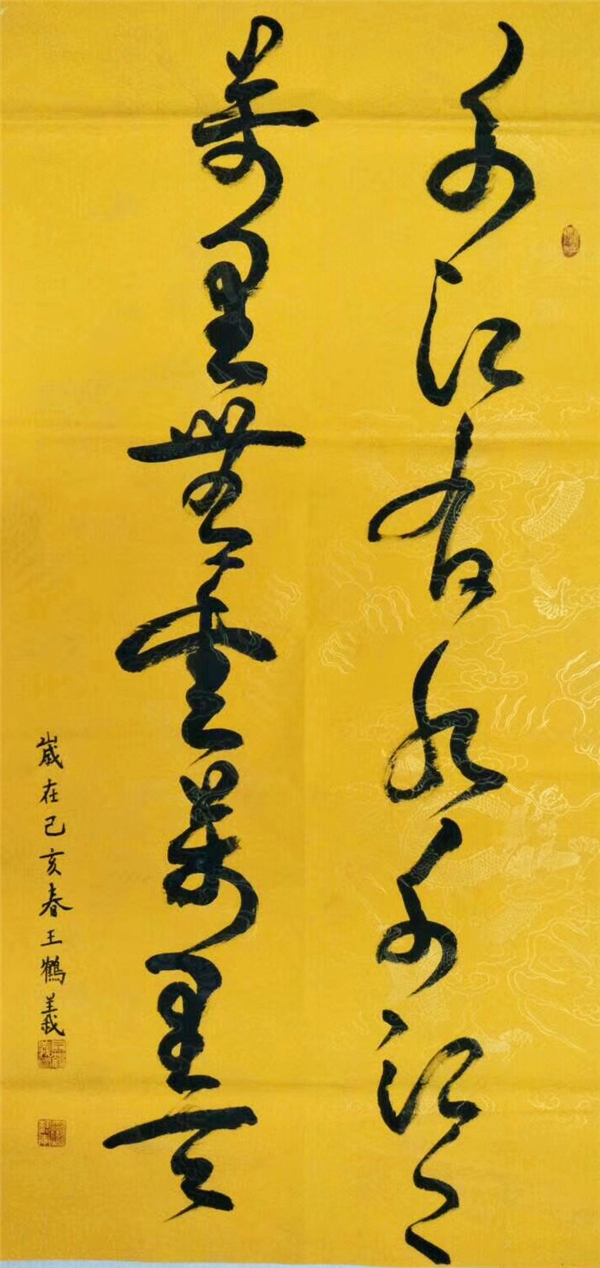 千江有水千江月
萬里無雲萬里天
歲在己亥春王鶴義